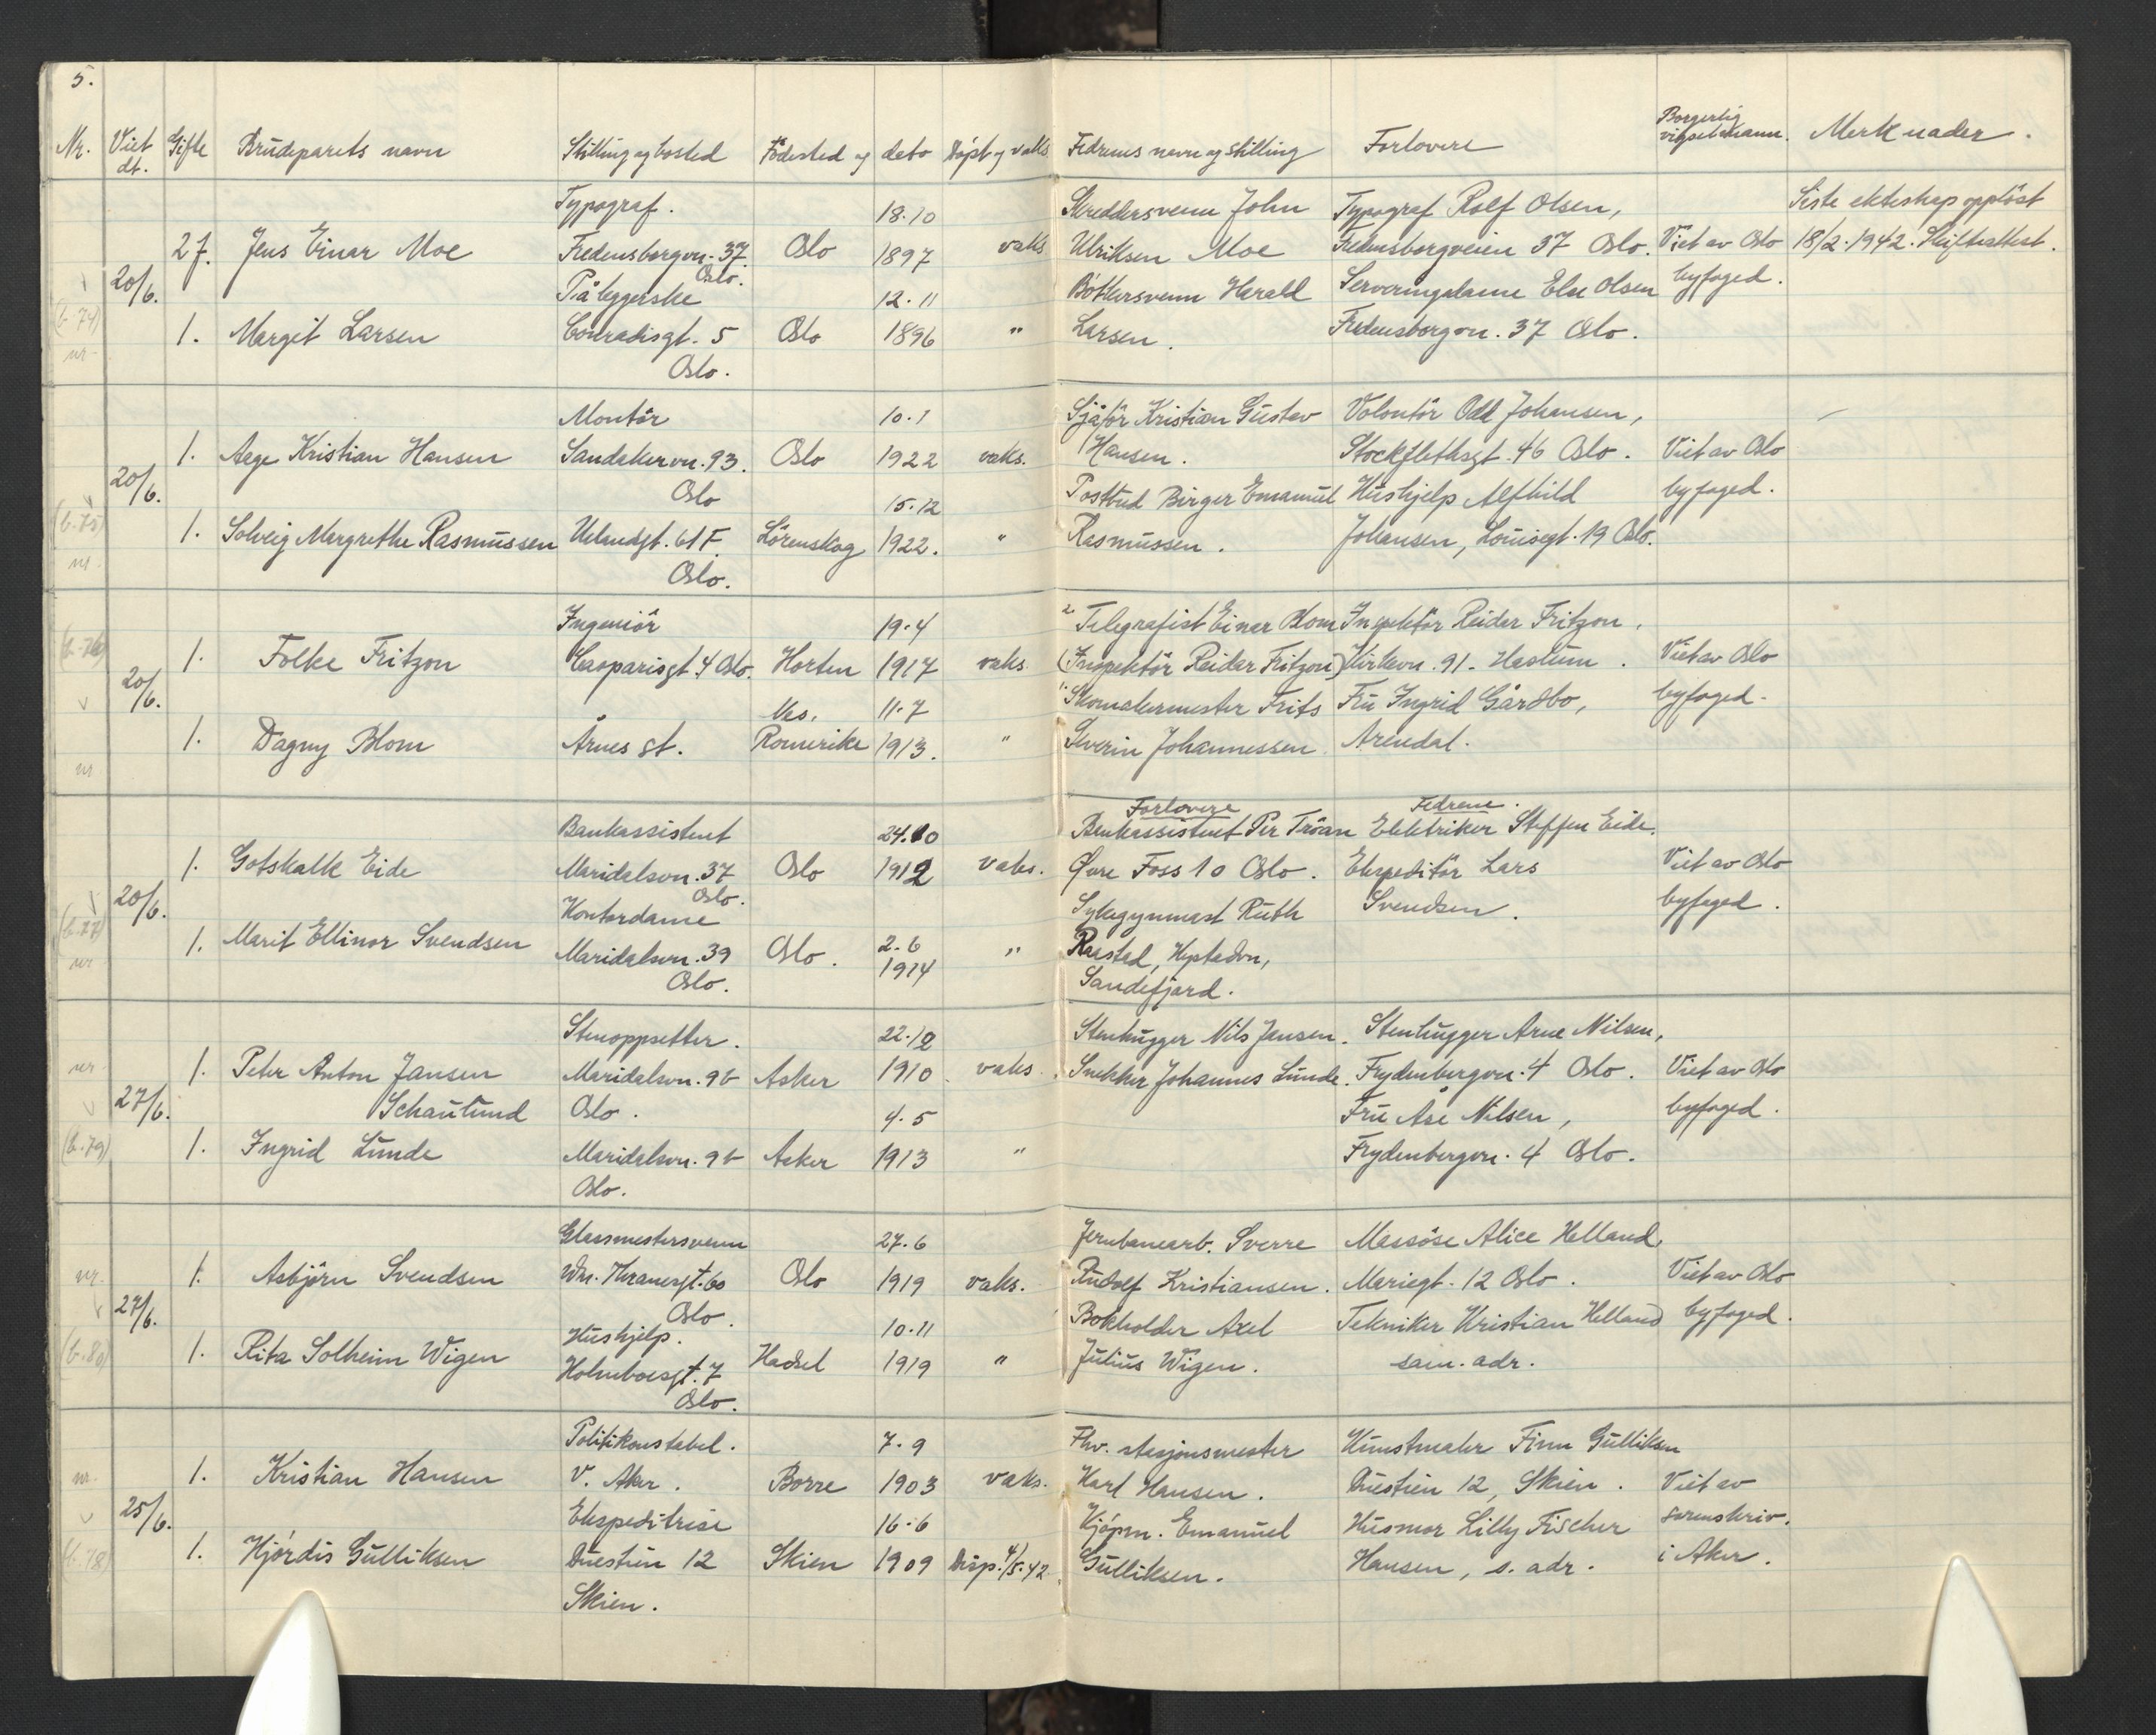 5.
Nr. Viet dt. Gifte Brudeparets navn Stilling og bosted Födested og dato Döpt og vaks. Fedrenes navn og stilling Forlovere Borgerlig vigselsmann. Merknader.
Typograf. 18.10 Skreddersvenn John Typograf Rolf Olsen, Siste ekteskap opplöst
2 f. Jens Einar Moe Fredensborgvn. 37 Oslo 1897 vaks Ulriksen Moe Fredensborgveien 37 Oslo. Viet av Oslo 18/2.1942. Skifteattest.
20/6. Oslo.
Påleggerske 12.11 Bötkersvenn Harald Serveringsdame Else Olsen byfoged.
(b.74) 1. Margit Larsen Conradisgt. 5 Oslo 1896 " Larsen. Fredensborgvn. 37 Oslo.
nr. Oslo.
Montör 10.1 Sjåför Kristian Gustav Volontör Odd Johansen, —
1. Aage Kristian Hansen Sandakervn. 93. Oslo 1922 vaks. Hansen. Stockflethsgt. 46 Oslo. Viet av Oslo
20/6. Oslo 15.12 Postbud Birger Emanuel Hushjelp Alfhild byfoged.
(b.75) 1. Solveig Margrethe Rasmussen Uelandsgt. 61 F. Lörenskog 1922. " Rasmussen. Johansen, Louisegt. 19 Oslo.
nr. Oslo.
Ingeniör 19.4 2 Telegrafist Einar Blom Inspektör Reidar Fritzon.
(b.76) 1. Folke Fritzon Casparisgt. 4 Oslo. Horten 1917 vaks. (Inspektör Reidar Fritzon) Kirkevn. 91. Haslum. Viet av Oslo
20/6. Nes, 11.7 1 Skomakermester Frits Fru Ingrid Gårdbo, byfoged.
1. Dagny Blom Årnes st. Romerike 1913. " Severin Johannessen Arendal.
nr.
Forlovere Fedrene.
Bankassistent 24.10 Bankassistent Per Tröan Elektriker Steffen Eide.
1. Gotskalk Eide Maridalsvn. 37 Oslo 1912 vaks. Övre Foss 10 Oslo. Ekspeditör Lars Viet av Oslo
20/6. Oslo.
(b.77) Kontordame Sykegymnast Ruth Svendsen. byfoged.
1. Marit Ellinor Svendsen Maridalsvn. 39 Oslo. 2.6 " Raastad,
nr Oslo. 1914 Sandefjord.
Stenoppsetter. 22.12 Stenhugger Nils Jansen. Stenhugger Arne Nilsen,
nr. 1. Peter Anton Jansen Maridalsvn. 9b Asker 1910. vaks. Snekker Johannes Lunde. Frydenbergvn. 4 Oslo. Viet av Oslo
27/6. Schaulund Oslo. 4.5 Fru Åse Nilsen, byfoged.
(b.79) 1. Ingrid Lunde Maridalsvn. 9b Asker 1913 " Frydenbergvn. 4 Oslo.
Oslo.
Glassmestersvenn 27.6 Jernbanearb. Sverre Massöse Alice Helland,
nr. 1. Asbjörn Svendsen Wm. Thranesgt. 60 Oslo 1919 vaks. Rudolf Kristiansen. Mariegt. 12 Oslo. Viet av Oslo
27/6. Oslo. 10.11 Bokholder Axel Tekniker Kristian Helland byfoged.
Hushjelp.
(b.80) 1. Rita Solheim Wigen Holmboesgt. 7 Hadsel 1919 " Julius Wigen. sam. adr.
Oslo.
Politikonstabel. 7.9 Fhv. stasjonsmester Kunstmaler Finn Gulliksen
nr. 1. Kristian Hansen V. Aker. Borre 1903 vaks. Karl Hansen. Duestien 12, Skien. Viet av
25/6. Ekspeditrise 16.6 Kjöpm. Emanuel Husmor Lilly Fischer sorenskriv.
(b.78) 1. Hjördis Gulliksen Duestien 12 Skien 1909 Disp. 4/5.42. Gulliksen. Hansen, s. adr. i Aker.
Skien.